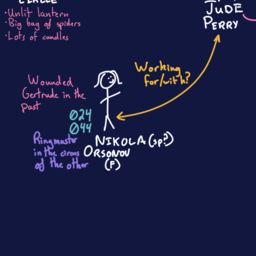 ·Unlit lantern
·Big bag of spiders
·Lots of candles
JUDE
PERRY
Working
for/with?
Wounded
Gertrude in the
past
024
044
Ringmaster
in the circus
of the other
NIKOLA (sp?)
ORSONOV
(F)